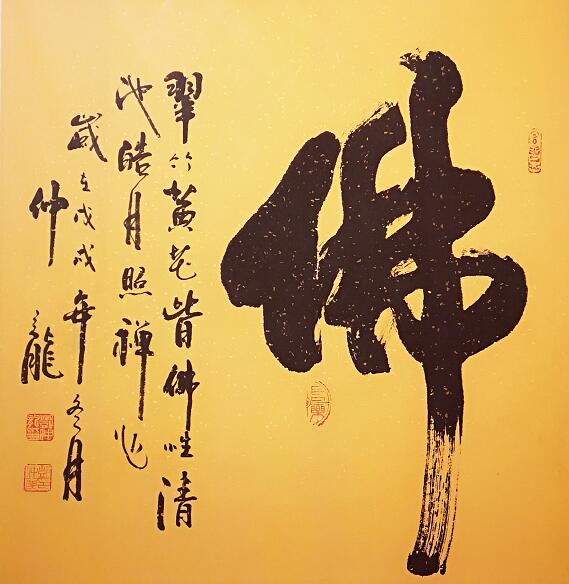 佛
翠竹黄花皆佛性清
池皓月照禅心
歲在戊戌年冬月
仲龍